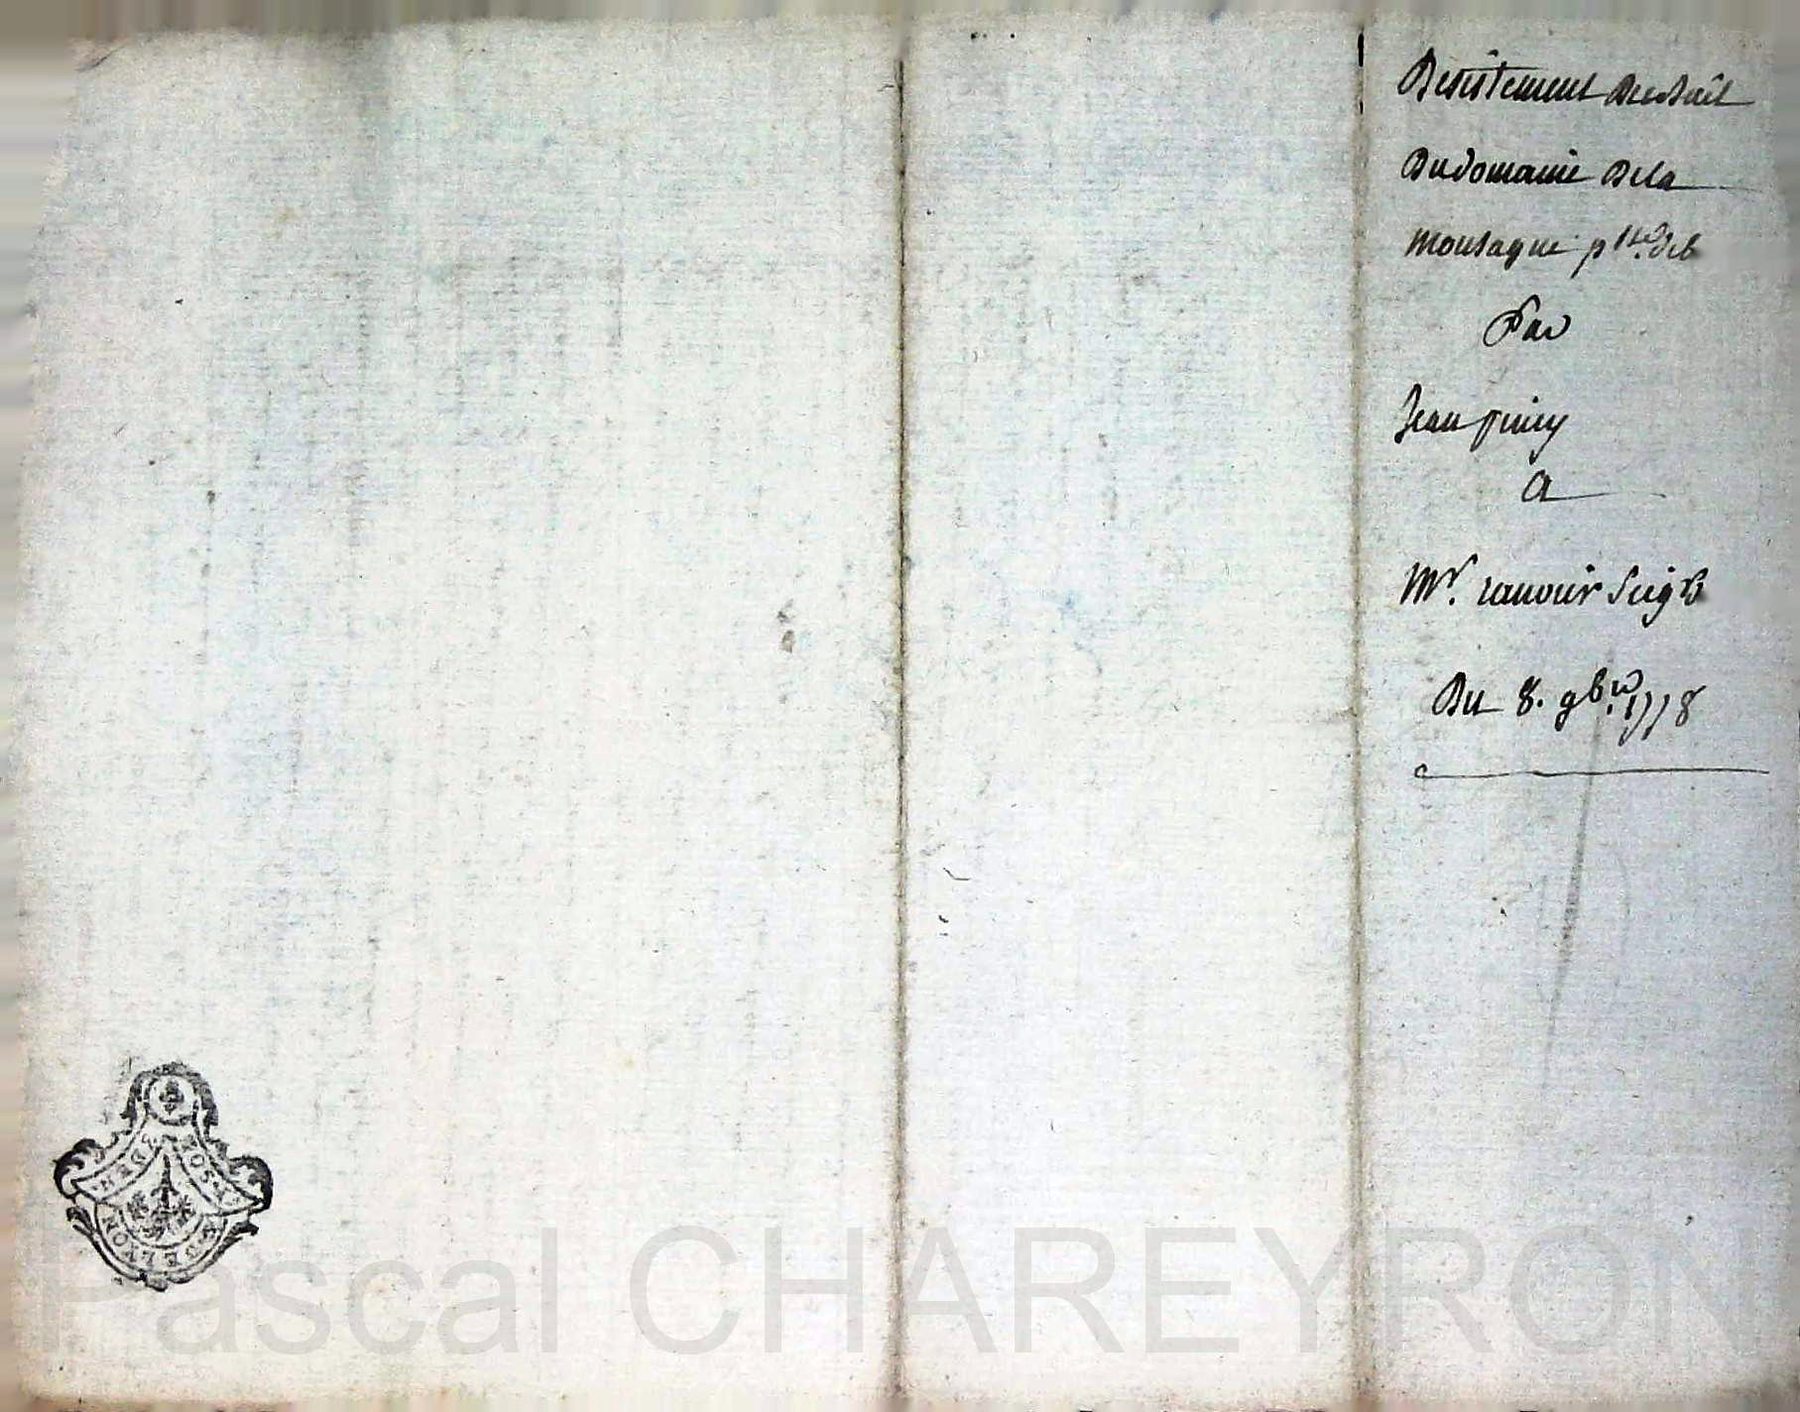 Desistement De Bail
Du domaine De la
montagne pt̃e. de B
Par
Jean piney
a
Mr. ranvier Seigr
Du 8. 9bre. 1778
DE LYON
Pascal CHAREYRON